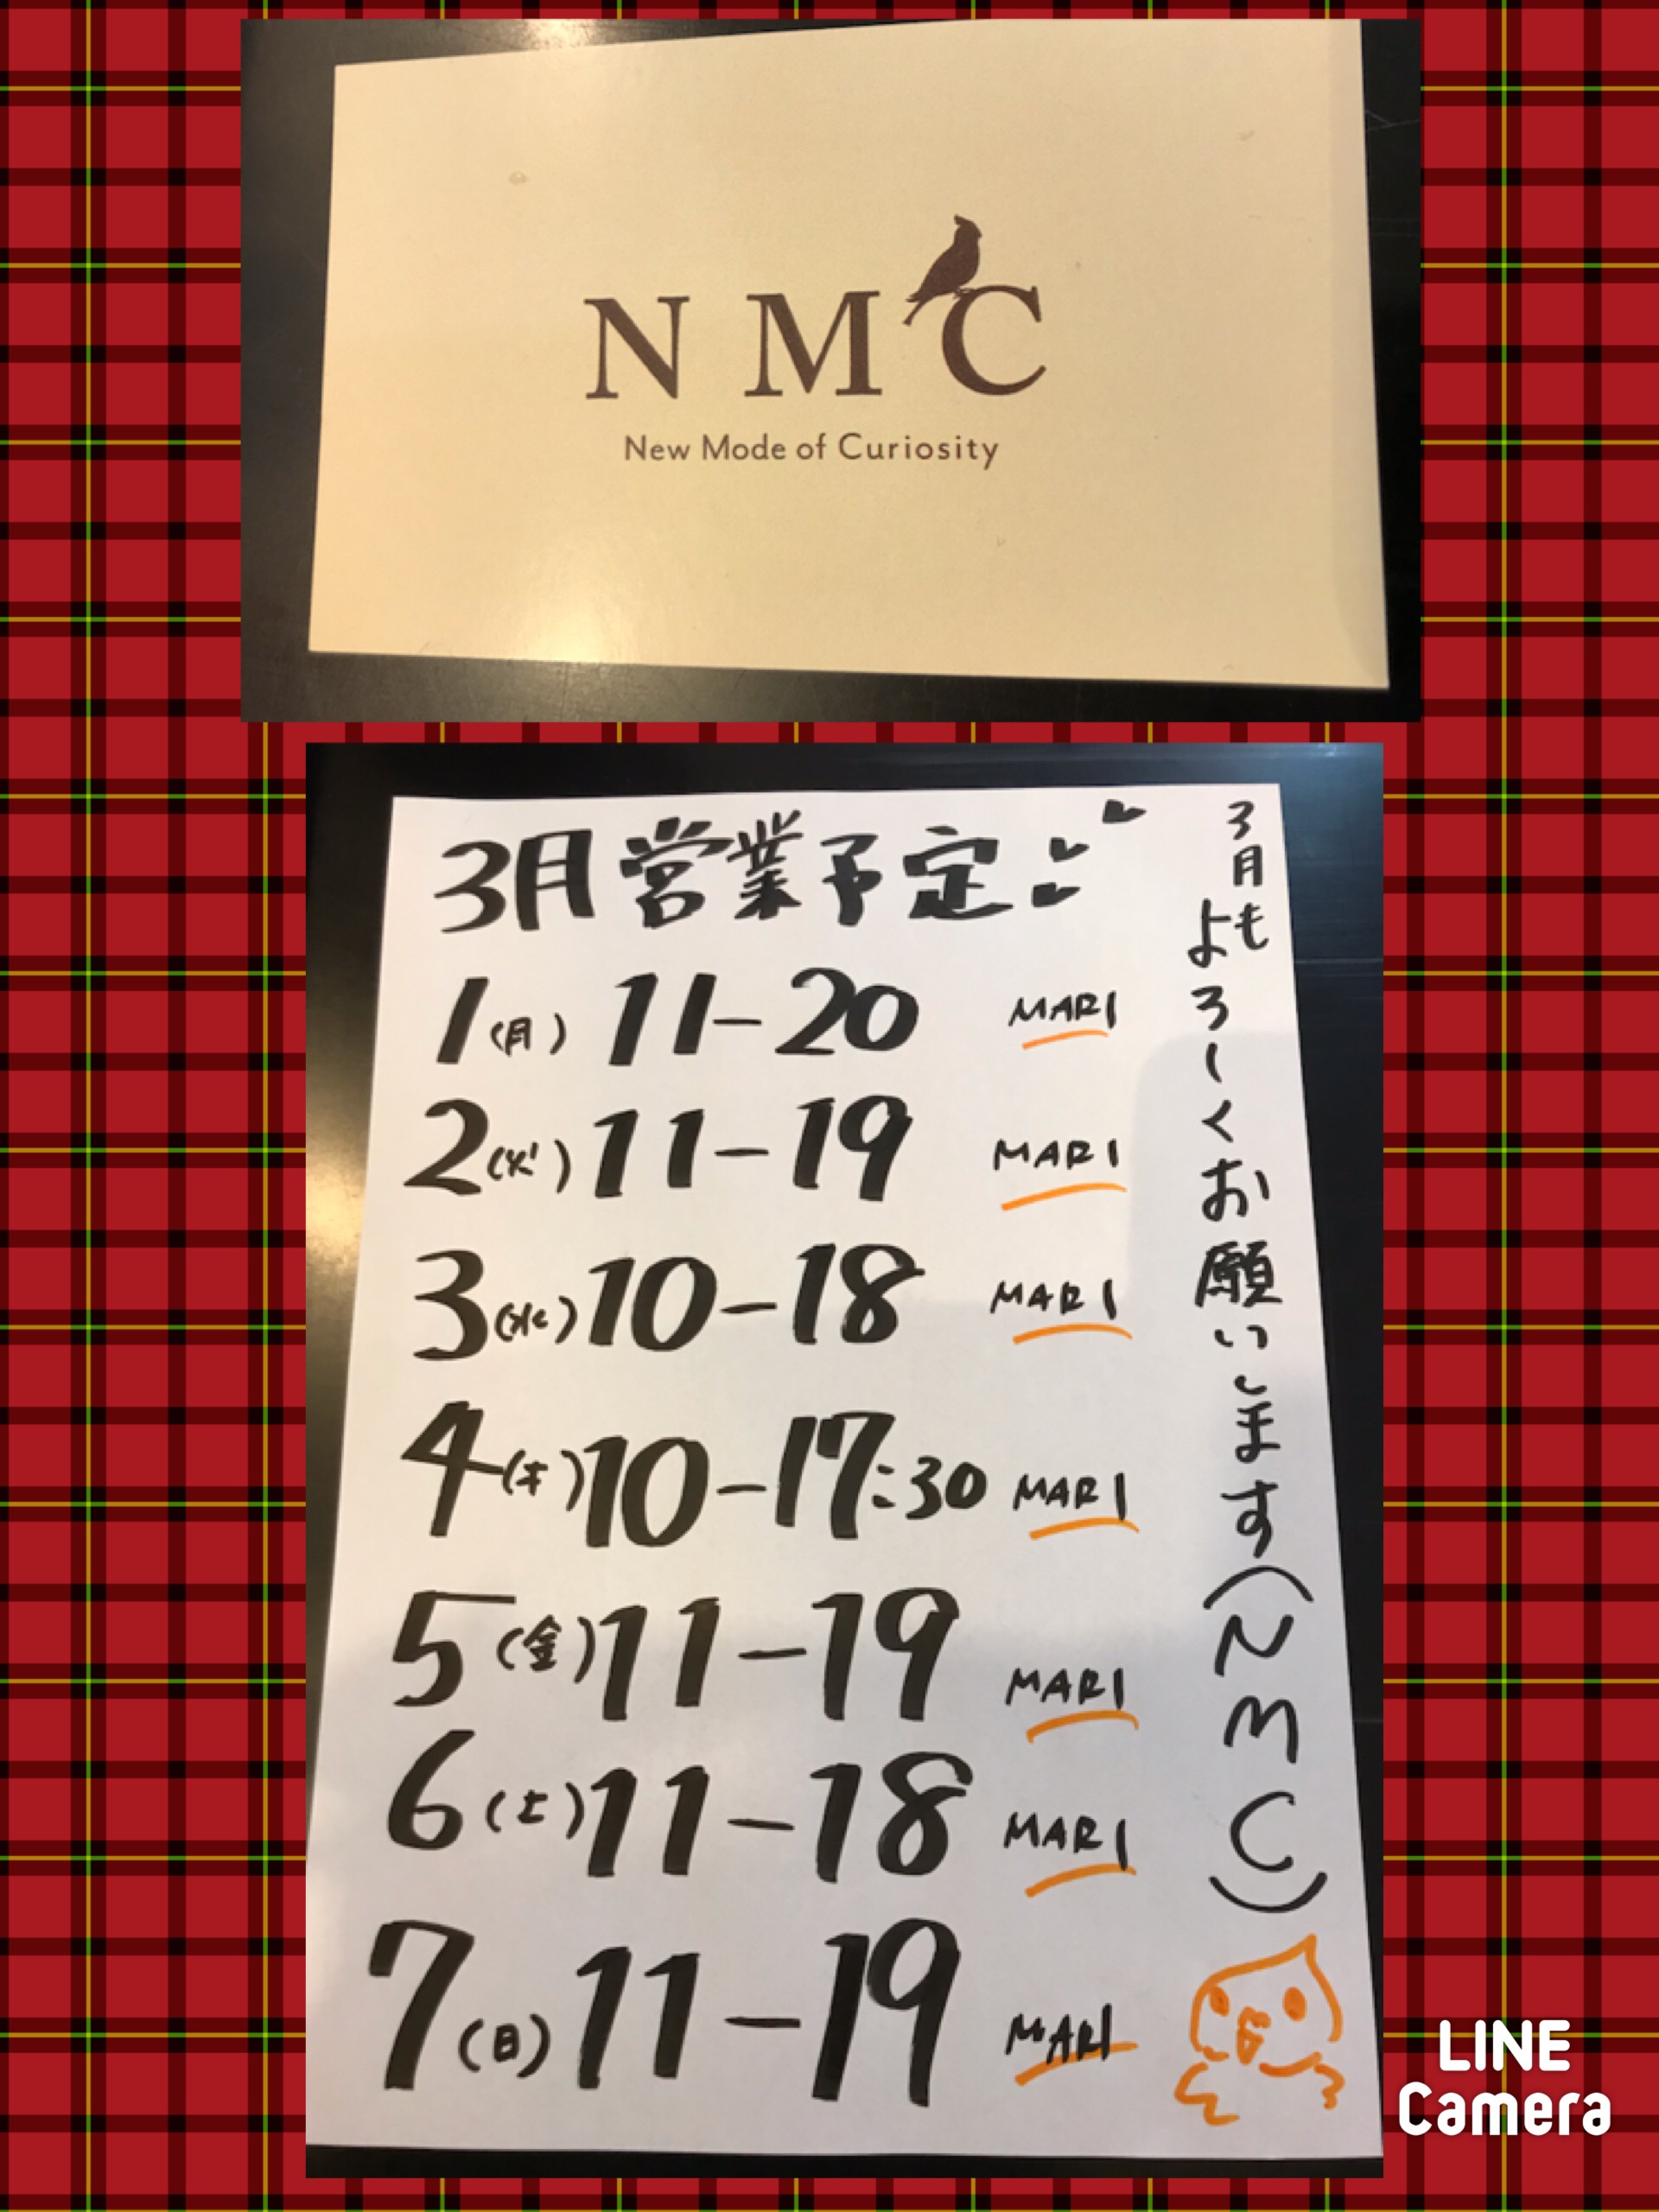 NMC
New Mode of Curiosity
3月営業予定
1(月) 11-20 MARI
2(火) 11-19 MARI
3(水) 10-18 MARI
4(木) 10-17:30 MARI
5(金) 11-19 MARI
6(土) 11-18 MARI
7(日) 11-19 MARI
3月も
よろしくお願いします(NMC)
LINE
Camera